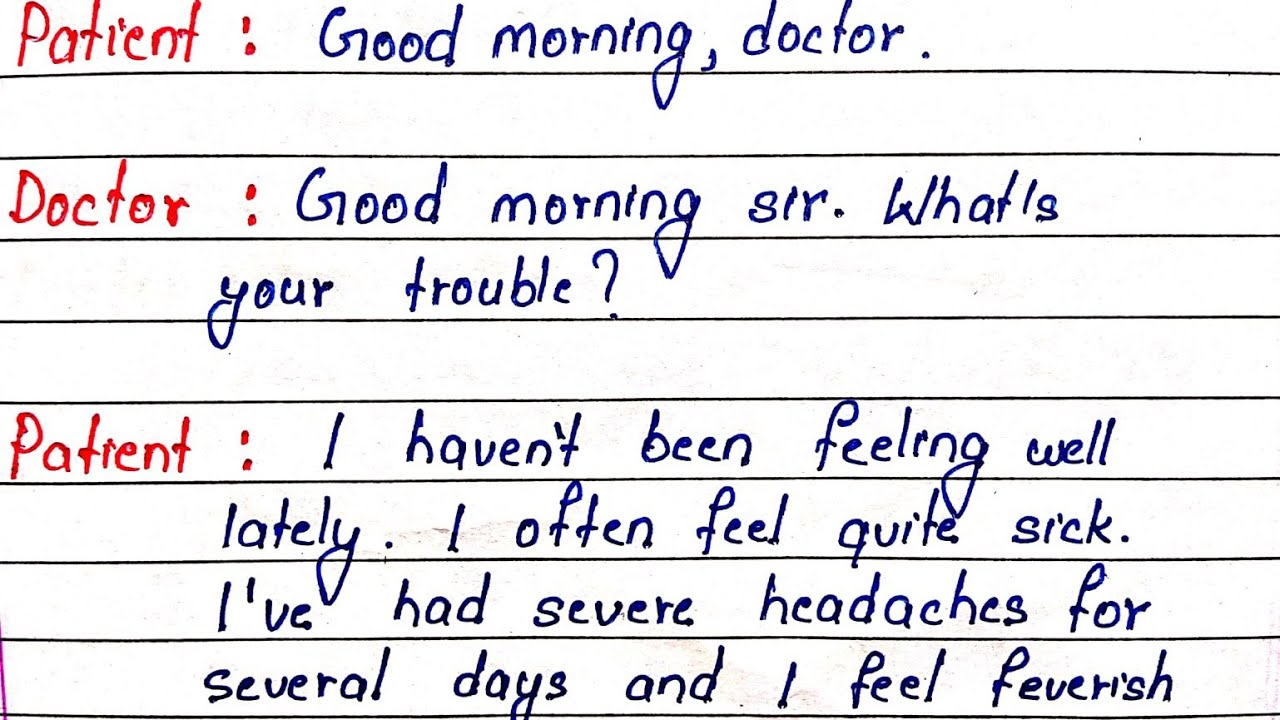 Patient : Good morning, doctor.
Doctor : Good morning sir. What's
your trouble?
Patient : I haven't been feeling well
lately. I often feel quite sick.
I've had severe headaches for
several days and I feel feverish